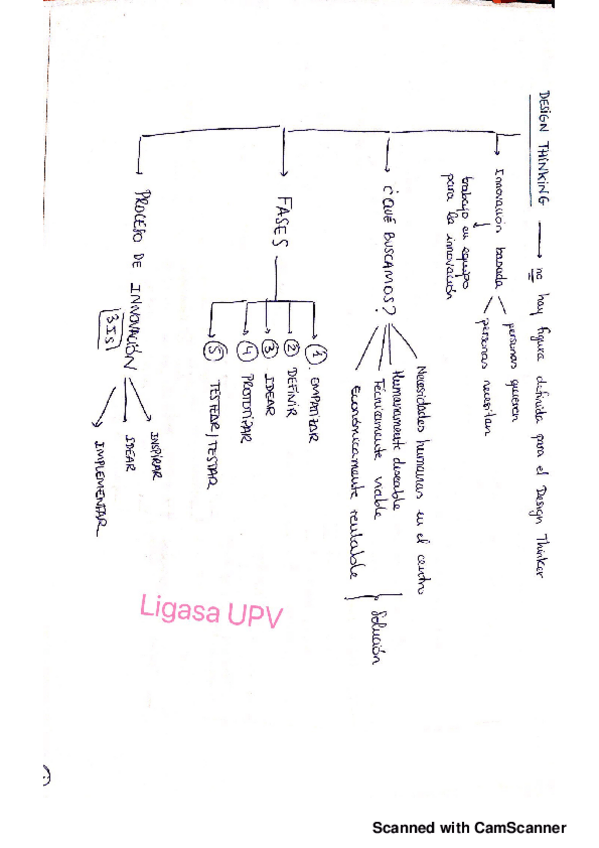 DESIGN THINKING → no hay figura definida para el Design Thinker
Innovación basada
personas quieren
personas necesitan
trabajo en equipo
para la innovación
¿QUÉ BUSCAMOS?
Necesidades humanas en el centro
Humanamente deseable
Técnicamente viable
económicamente rentable
Solución
FASES
1. EMPATIZAR
2 DEFINIR
3 IDEAR
4 PROTOTIPAR
5 TESTEAR/TESTAR
PROCESO DE INNOVACIÓN
3 Is
INSPIRAR
IDEAR
IMPLEMENTAR
Ligasa UPV
Scanned with CamScanner